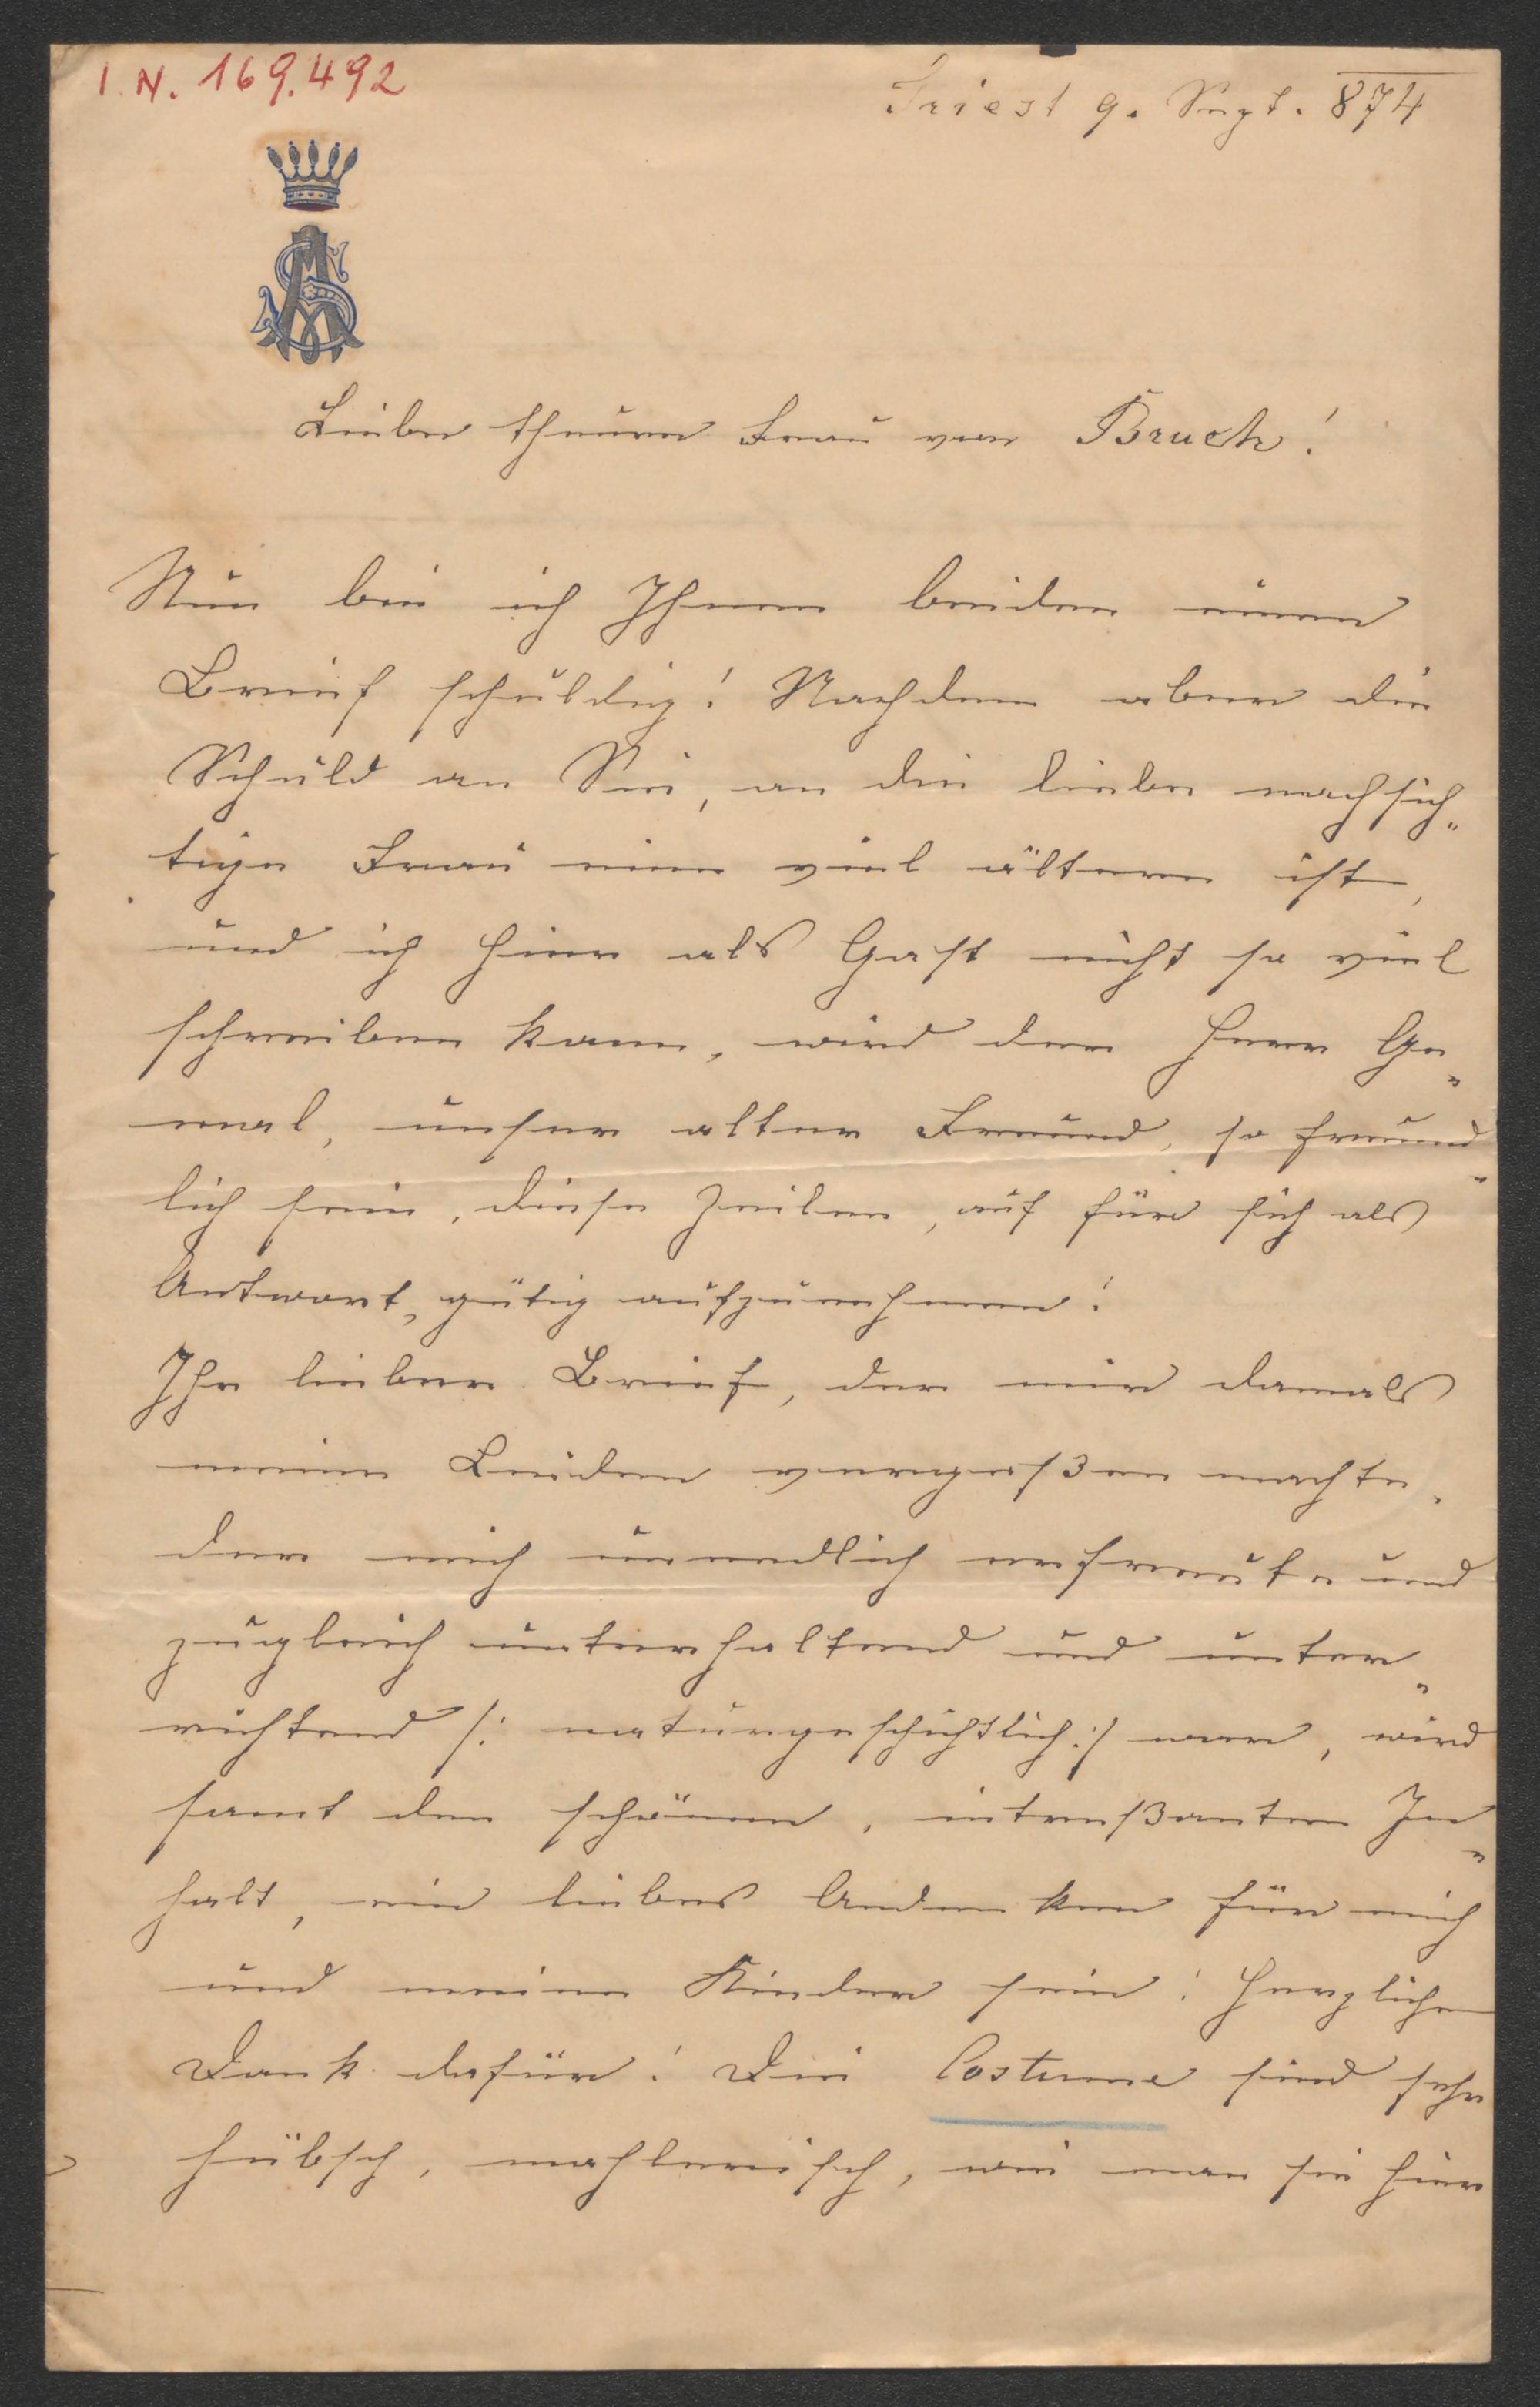 I. N. 169.492
Triest 9. Sept. 874
AS
Liebe theure Frau von Bruck!
Nun bin ich Ihnen beiden einen
Brief schuldig! Nachdem aber die
Schuld an Sie, an die liebe nachsich„
tige Frau eine viel ältere ist,
und ich hier als Gast nicht so viel
schreiben kann, wird der Herr Ge„
mal, unser alter Freund, so freund„
lich sein, diese Zeilen, auch für sich als
Antwort, gütig aufzunehmen!
Ihr lieber Brief, der mir damals
meine Leiden vergeßen machte,
der mich unendlich erfreute und
zugleich unterhaltend und unter„
richtend /: naturgeschichtlich :/ war, wird
samt den schönen, intereßanten In„
halt, ein liebes Andenken für mich
und meine Kinder sein! Herzlichen
Dank dafür! Die Costume sind sehr
hübsch, mahlerisch, wie man sie hier